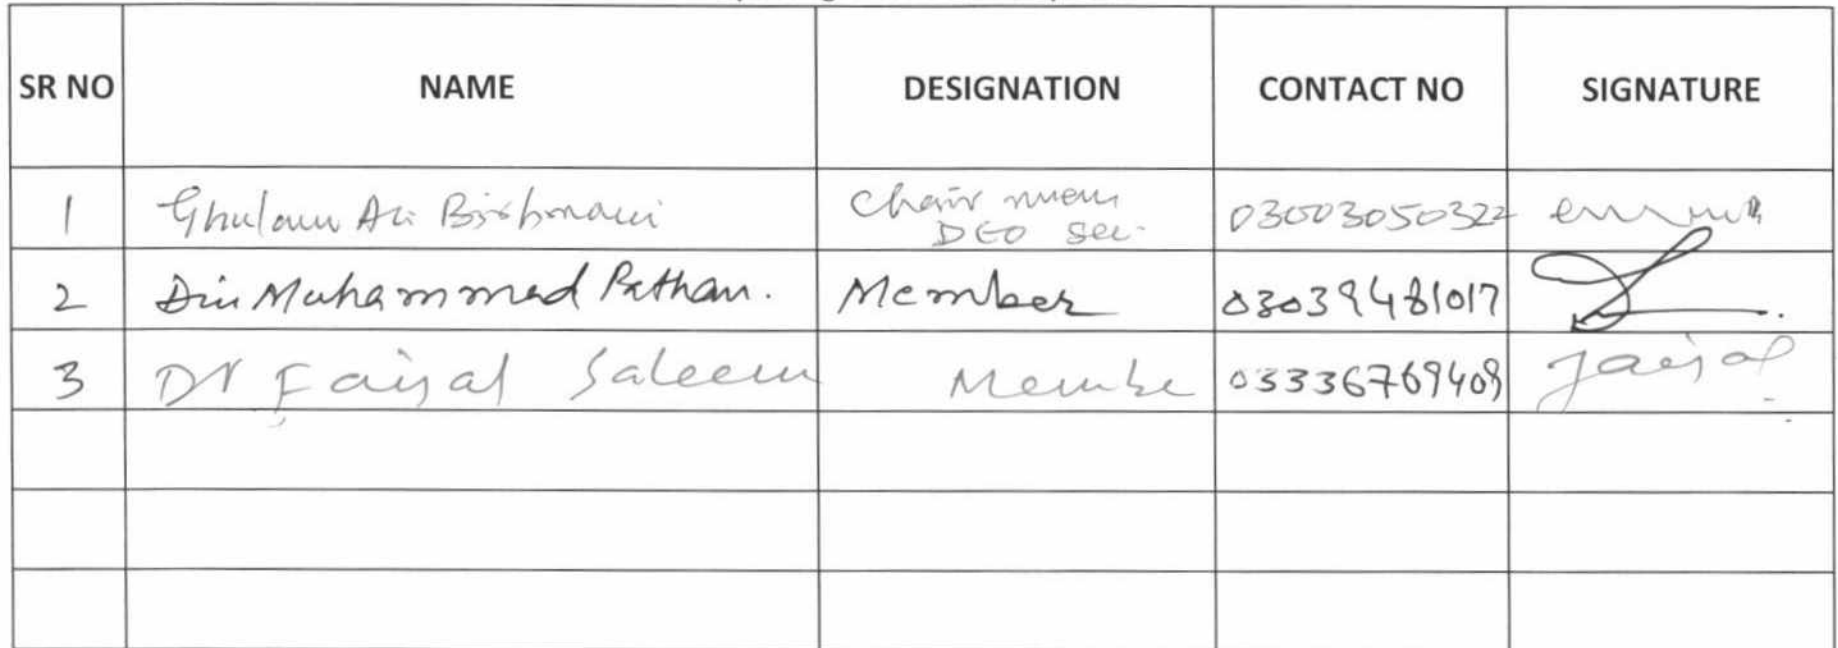 SR NO NAME DESIGNATION CONTACT NO SIGNATURE
1 Ghulam Ali Chairman 03003050322
DEO sec.
2 Din Muhammad Pathan. Member 03039481017
3 Dr Faisal Saleem Membe 03336769409 Faisal